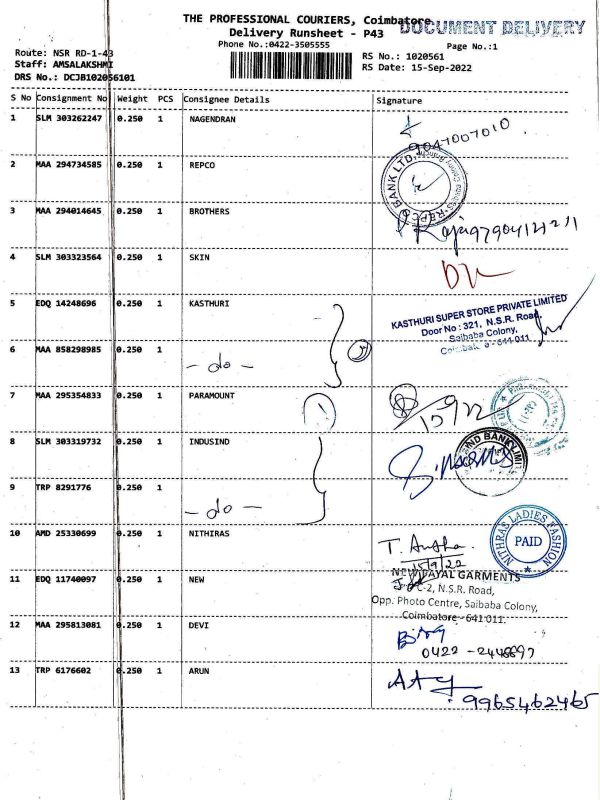 THE PROFESSIONAL COURIERS, Coimbatore.
DOCUMENT DELIVERY
Delivery Runsheet - P43
Phone No.:0422-3505555
Page No.:1
Route: NSR RD-1-43
RS No.: 1020561
Staff: AMSALAKSHMI
RS Date: 15-Sep-2022
DRS No.: DCJB102056101
S No Consignment No Weight PCS Consignee Details Signature
1 SLM 303262247 0.250 1 NAGENDRAN
9047007010
2 MAA 294734585 0.250 1 REPCO
BANK LTD
3 MAA 294014645 0.250 1 BROTHERS
4 SLM 303323564 0.250 1 SKIN
5 EDQ 14248696 0.250 1 KASTHURI
KASTHURI SUPER STORE PRIVATE LIMITED
Door No : 321, N.S.R. Road,
Saibaba Colony,
Coimbatore - 641 011
6 MAA 858298985 0.250 1
- do -
7 MAA 295354833 0.250 1 PARAMOUNT
15/9/22
8 SLM 303319732 0.250 1 INDUSIND
9 TRP 8291776 0.250 1
- do -
10 AMD 25330699 0.250 1 NITHIRAS
NITHRAS LADIES FASHION
PAID
15/9/22
11 EDQ 11740097 0.250 1 NEW
NEW PAYAL GARMENTS
C-2, N.S.R. Road,
Opp. Photo Centre, Saibaba Colony,
Coimbatore - 641 011.
12 MAA 295813081 0.250 1 DEVI
13 TRP 6176602 0.250 1 ARUN
9965462465